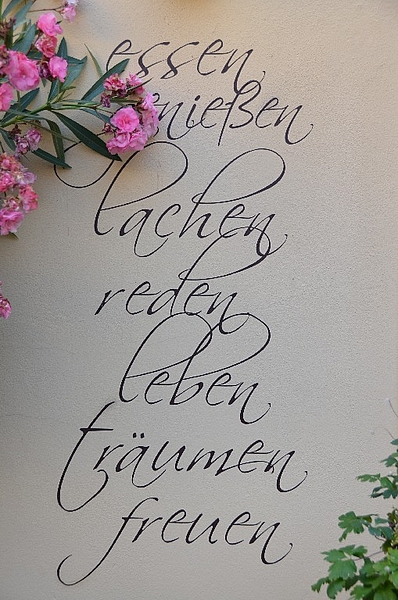 essen
genießen
lachen
reden
leben
träumen
freuen